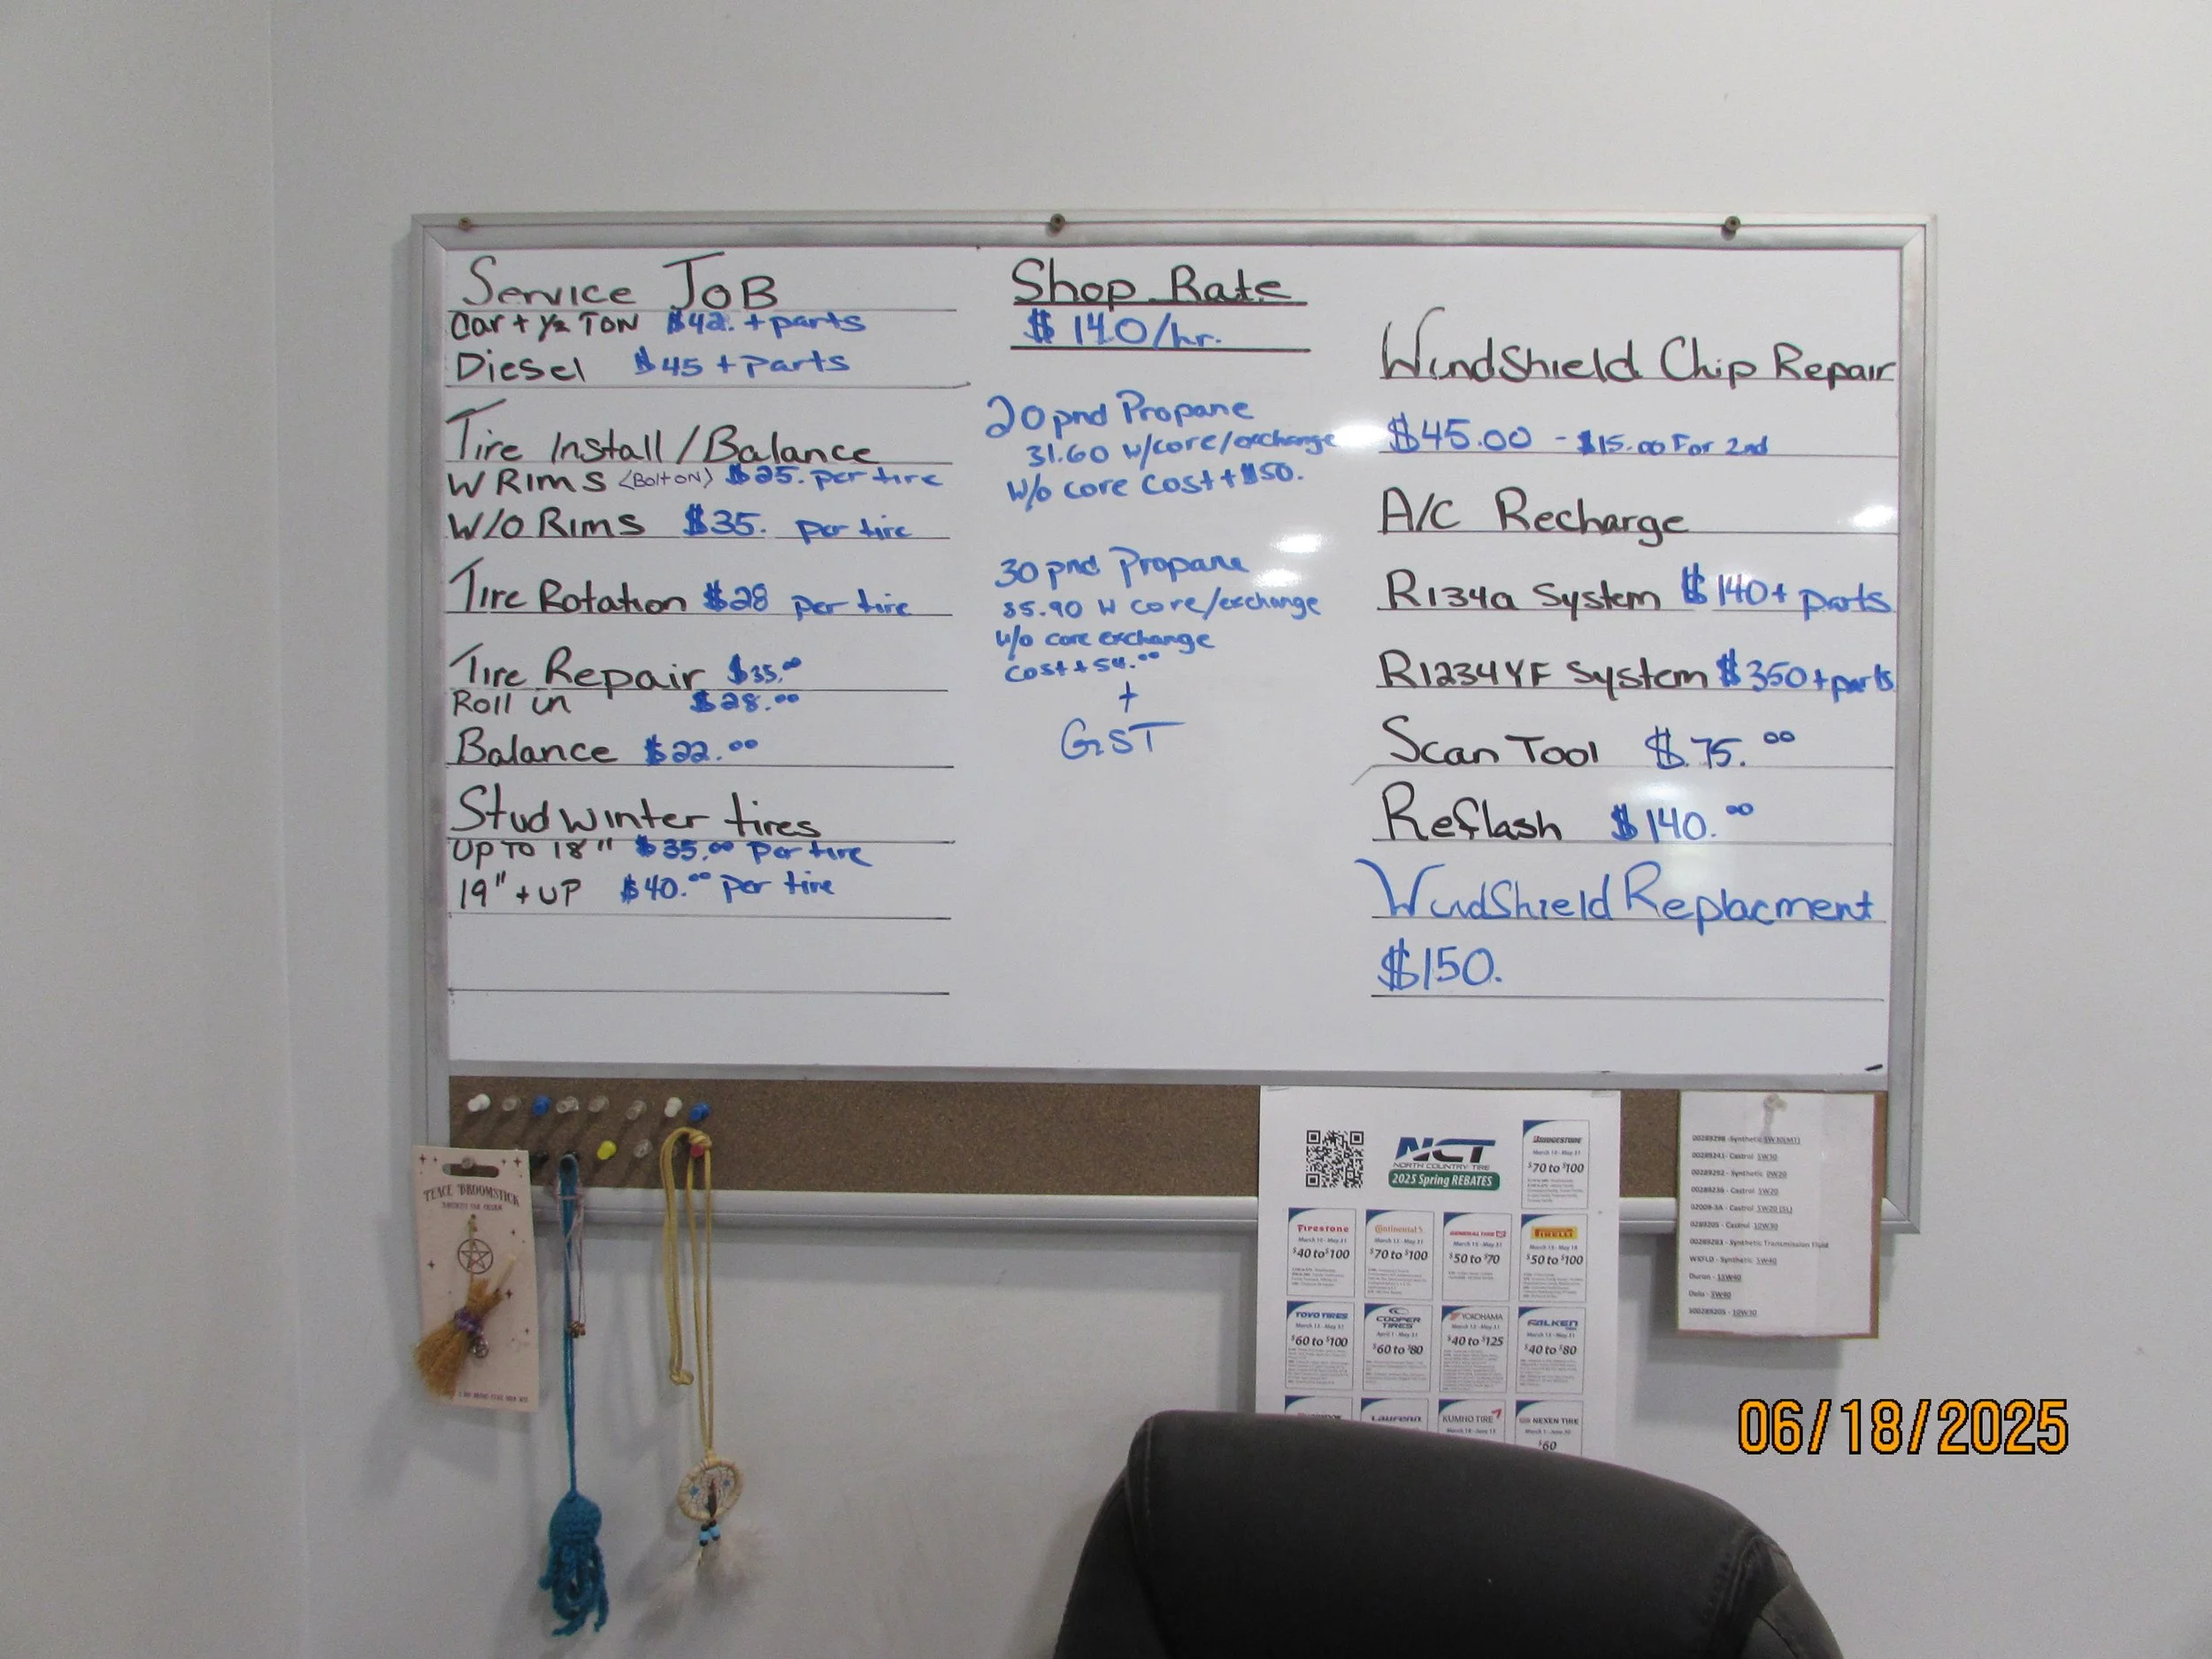 Service JOB
Car + ½ TON $42. + parts
Diesel $45 + parts
Tire Install/Balance
W RIMS <Bolt ON> $25. per tire
W/O RIMS $35. per tire
Tire Rotation $28 per tire
Tire Repair $35.00
Roll in $28.00
Balance $22.00
Stud winter tires
UP TO 18" $35.00 per tire
19" + UP $40.00 per tire
Shop Rate
$140/hr.
20 pnd Propane
31.60 w/core/exchange
w/o core cost + $50.
30 pnd Propane
35.90 W core/exchange
w/o core exchange
cost + 54.00
+
GST
Windshield Chip Repair
$45.00 - $15.00 For 2nd
A/C Recharge
R134a System $140 + parts
R1234YF System $350 + parts
Scan Tool $75.00
Reflash $140.00
Windshield Replacment
$150.
NCT
NORTH COUNTRY TIRE
2025 Spring REBATES
BRIDGESTONE
March 10 - May 31
$70 to $100
Firestone
$40 to $100
Continental
$70 to $100
GENERAL TIRE
$50 to $70
PIRELLI
$50 to $100
TOYO TIRES
$60 to $100
COOPER TIRES
April 1 - May 31
$60 to $80
YOKOHAMA
$40 to $125
FALKEN
$40 to $80
Laufenn
KUMHO TIRE
NEXEN TIRE
$60
00289241 - Castrol 5W30
00289292 - Synthetic 0W20
00289236 - Castrol 5W20
0289205 - Castrol 10W30
00289283 - Synthetic Transmission Fluid
Synthetic 5W40
Duron - 15W40
5W40
10W30
BROOMSTICK
06/18/2025